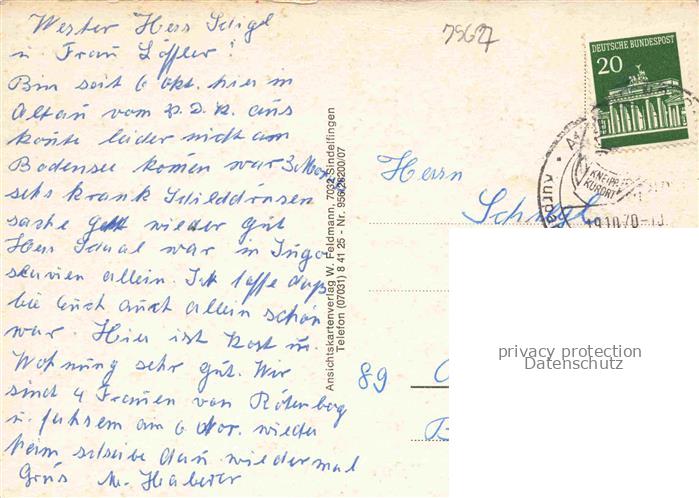 Werter Herr Schigl
u Frau Löffler!
Bin seit 6 okt. hier in
Altau vom aus
konte leider nicht am
Bodensee komen war 3 Mon
sehr krank Schilddrüsen
sache geht wieder gut
Herr Schaal war in Jugo
slavien allein. Ich hoffe daß
bei Euch auch allein schön
war. Hier ist kost u.
Wohnung sehr gut. Wir
sind 4 Frauen von Rötenberg
u. fahren am 6 Nov. wieder
heim schreibe dan wiedermal
Grüs M. Haberer
Ansichtskartenverlag W. Feldmann, 7032 Sindelfingen
Telefon (07031) 8 41 25 - Nr. 956/26200/07
7567
DEUTSCHE BUNDESPOST
20
KNEIPP
KURORT
19.10.70
Herrn
89
privacy protection
Datenschutz